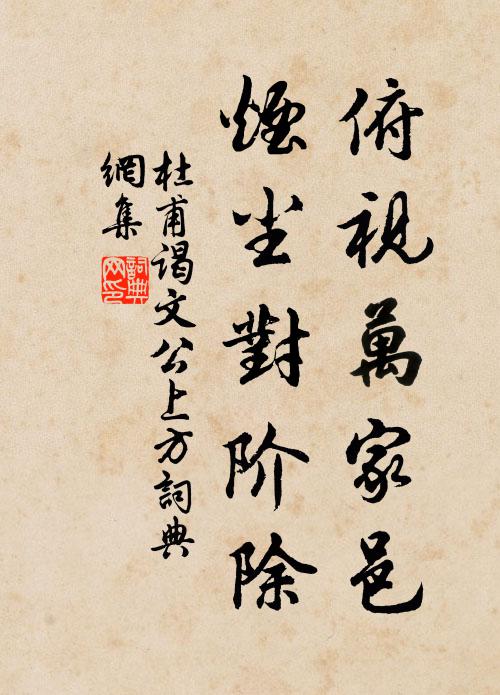 俯视萬家邑
煙尘對阶除
杜甫谒文公上方詞典
網集
詞典
网印